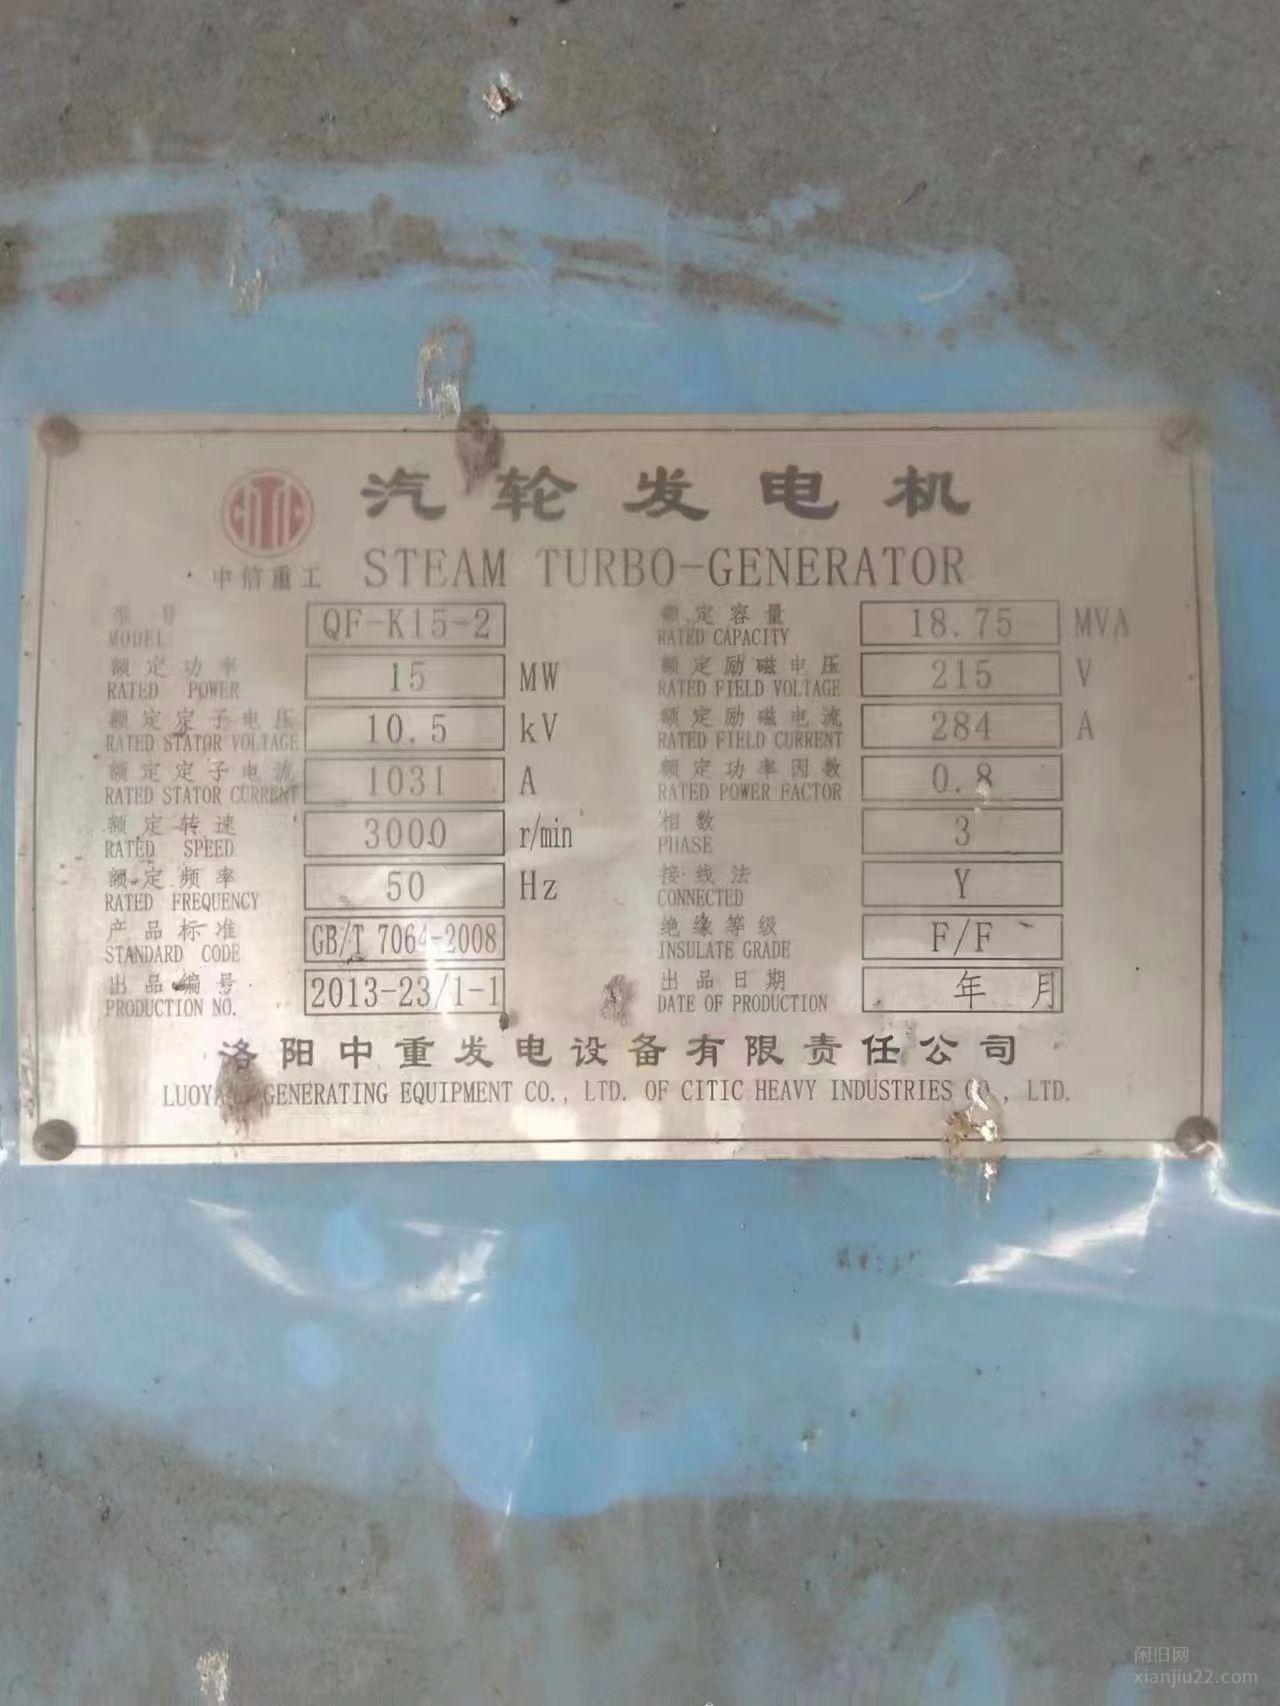 CITIC
中信重工
汽轮发电机
STEAM TURBO-GENERATOR
型号 QF-K15-2 额定容量 18.75 MVA
MODEL RATED CAPACITY
额定功率 15 MW 额定励磁电压 215 V
RATED POWER RATED FIELD VOLTAGE
额定定子电压 10.5 kV 额定励磁电流 284 A
RATED STATOR VOLTAGE RATED FIELD CURRENT
额定定子电流 1031 A 额定功率因数 0.8
RATED STATOR CURRENT RATED POWER FACTOR
额定转速 3000 r/min 相数 3
RATED SPEED PHASE
额定频率 50 Hz 接线法 Y
RATED FREQUENCY CONNECTED
产品标准 GB/T 7064-2008 绝缘等级 F/F
STANDARD CODE INSULATE GRADE
出品编号 2013-23/1-1 出品日期 年 月
PRODUCTION NO. DATE OF PRODUCTION
洛阳中重发电设备有限责任公司
GENERATING EQUIPMENT CO., LTD. OF CITIC HEAVY INDUSTRIES CO., LTD.
闲旧网
xianjiu22.com